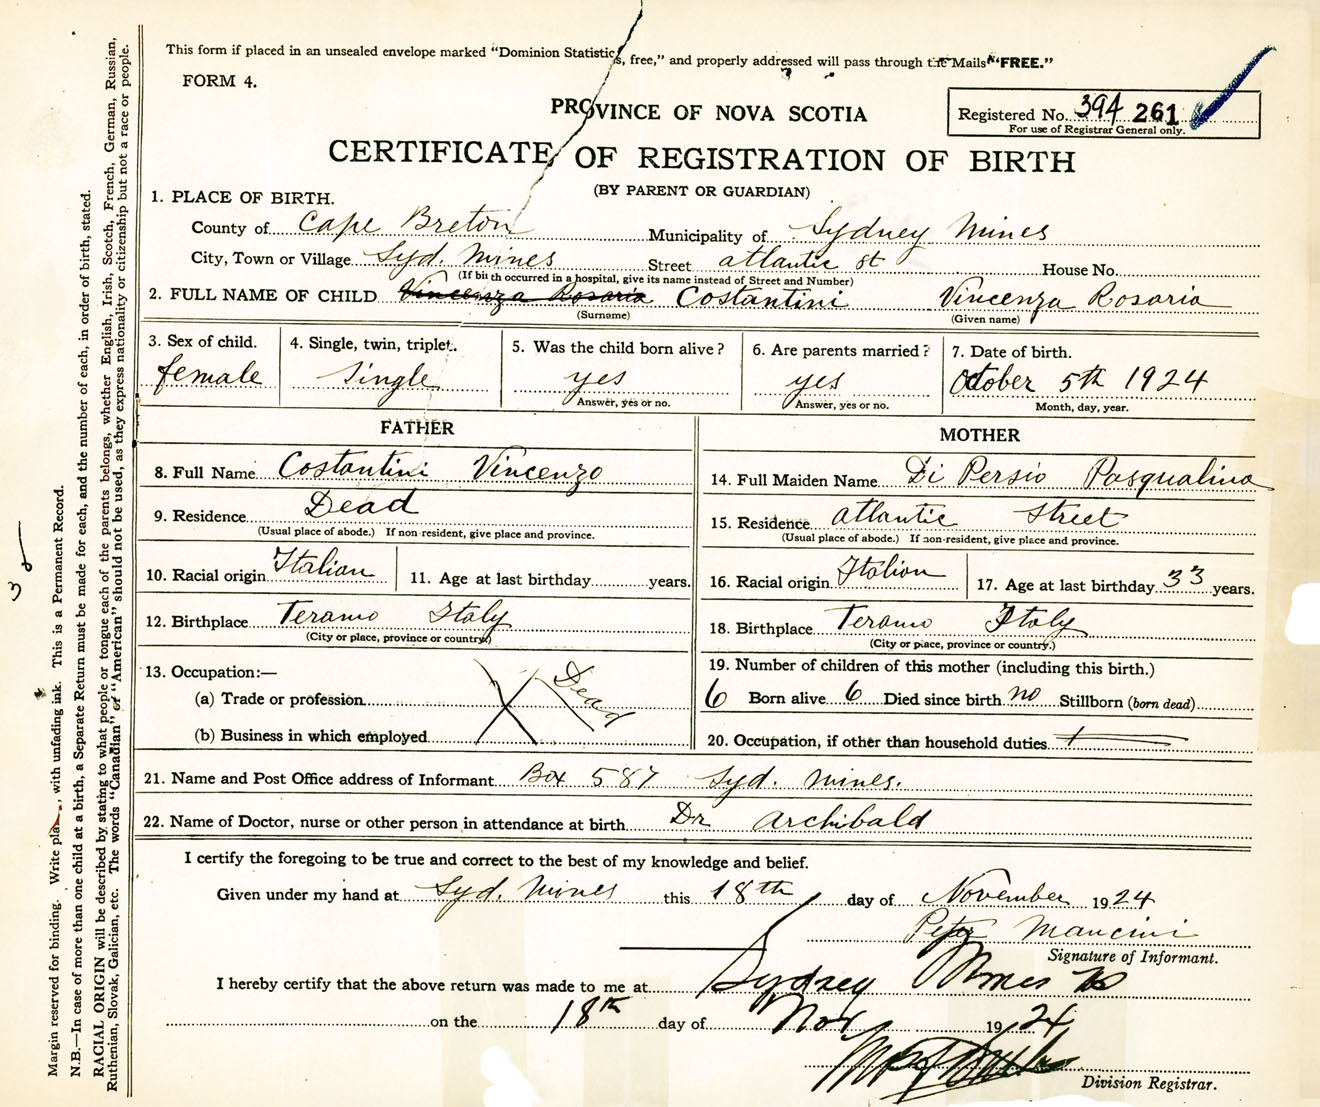 This form if placed in an unsealed envelope marked "Dominion Statistics, free," and properly addressed will pass through the Mails "FREE."
FORM 4.
PROVINCE OF NOVA SCOTIA
Registered No. 394 261
For use of Registrar General only.
CERTIFICATE OF REGISTRATION OF BIRTH
(BY PARENT OR GUARDIAN)
1. PLACE OF BIRTH.
County of Cape Breton Municipality of Sydney Mines
City, Town or Village Syd. Mines Street Atlantic St House No.
(If birth occurred in a hospital, give its name instead of Street and Number)
2. FULL NAME OF CHILD Vincenza Rosaria Costantini Vincenza Rosaria
(Surname) (Given name)
3. Sex of child. 4. Single, twin, triplet. 5. Was the child born alive? 6. Are parents married? 7. Date of birth.
female Single yes yes October 5th 1924
Answer, yes or no. Answer, yes or no. Month, day, year.
FATHER MOTHER
8. Full Name Costantini Vincenzo
14. Full Maiden Name Di Persio Pasqualina
9. Residence Dead
(Usual place of abode.) If non-resident, give place and province.
15. Residence Atlantic Street
(Usual place of abode.) If non-resident, give place and province.
10. Racial origin Italian 11. Age at last birthday years.
16. Racial origin Italian 17. Age at last birthday 33 years.
12. Birthplace Teramo Italy
(City or place, province or country)
18. Birthplace Teramo Italy
(City or place, province or country.)
13. Occupation:—
(a) Trade or profession Dead
(b) Business in which employed
19. Number of children of this mother (including this birth.)
6 Born alive 6 Died since birth no Stillborn (born dead)
20. Occupation, if other than household duties
21. Name and Post Office address of Informant Box 587 Syd. Mines.
22. Name of Doctor, nurse or other person in attendance at birth Dr Archibald
I certify the foregoing to be true and correct to the best of my knowledge and belief.
Given under my hand at Syd. Mines this 18th day of November 1924
Peter Mancini
Signature of Informant.
I hereby certify that the above return was made to me at Sydney Mines
on the 18th day of Nov 1924
Division Registrar.
Margin reserved for binding. Write plain, with unfading ink. This is a Permanent Record.
N.B.—In case of more than one child at a birth, a Separate Return must be made for each, and the number of each, in order of birth, stated.
RACIAL ORIGIN will be described by stating to what people or tongue each of the parents belongs, whether English, Irish, Scotch, French, German, Russian,
Ruthenian, Slovak, Galician, etc. The words "Canadian" or "American" should not be used, as they express nationality or citizenship but not a race or people.